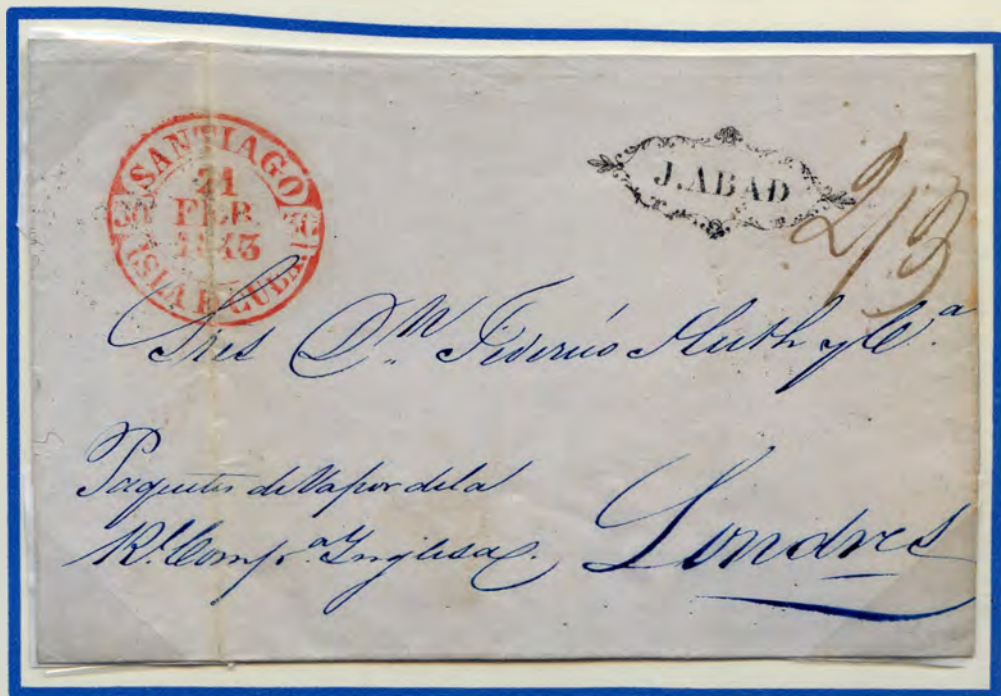 SANTIAGO
21
FEB.
1843
30 30
ISLA DE CUBA
J.ABAD
2/3
Sres Dn Federico Huth y Ca.
Paquetes de Vapor de la
Rl. Compa. Inglesa.
Londres